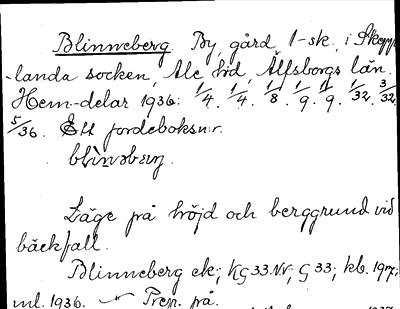 Blinneberg. By, gård, 1-sk., i Skepp-
landa socken, Ale hd, Älfsborgs län.
Hem-delar 1936: 1/4. 1/4. 1/8. 1/9. 1/9. 1/32. 3/32.
5/36. Ett jordeboksn:r.
Läge på höjd och berggrund vid
bäckfall.
Blinneberg ek; KG 33 NV, G 33; kb. 1917;
ml. 1936. Prep. på.